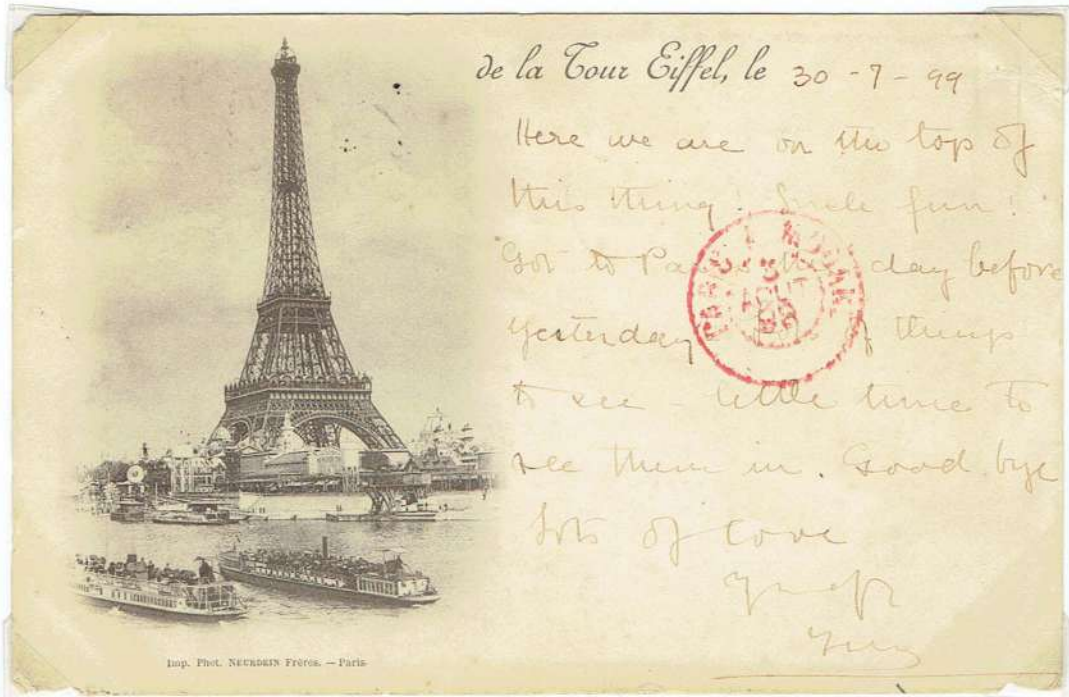 de la Tour Eiffel, le 30-7-99
Here we are on the top of
this thing! fun!
Got to Paris the day before
yesterday of things
to see - little time to
see them in. Good bye
Lots of love
Imp. Phot. NEURDEIN Frères. — Paris